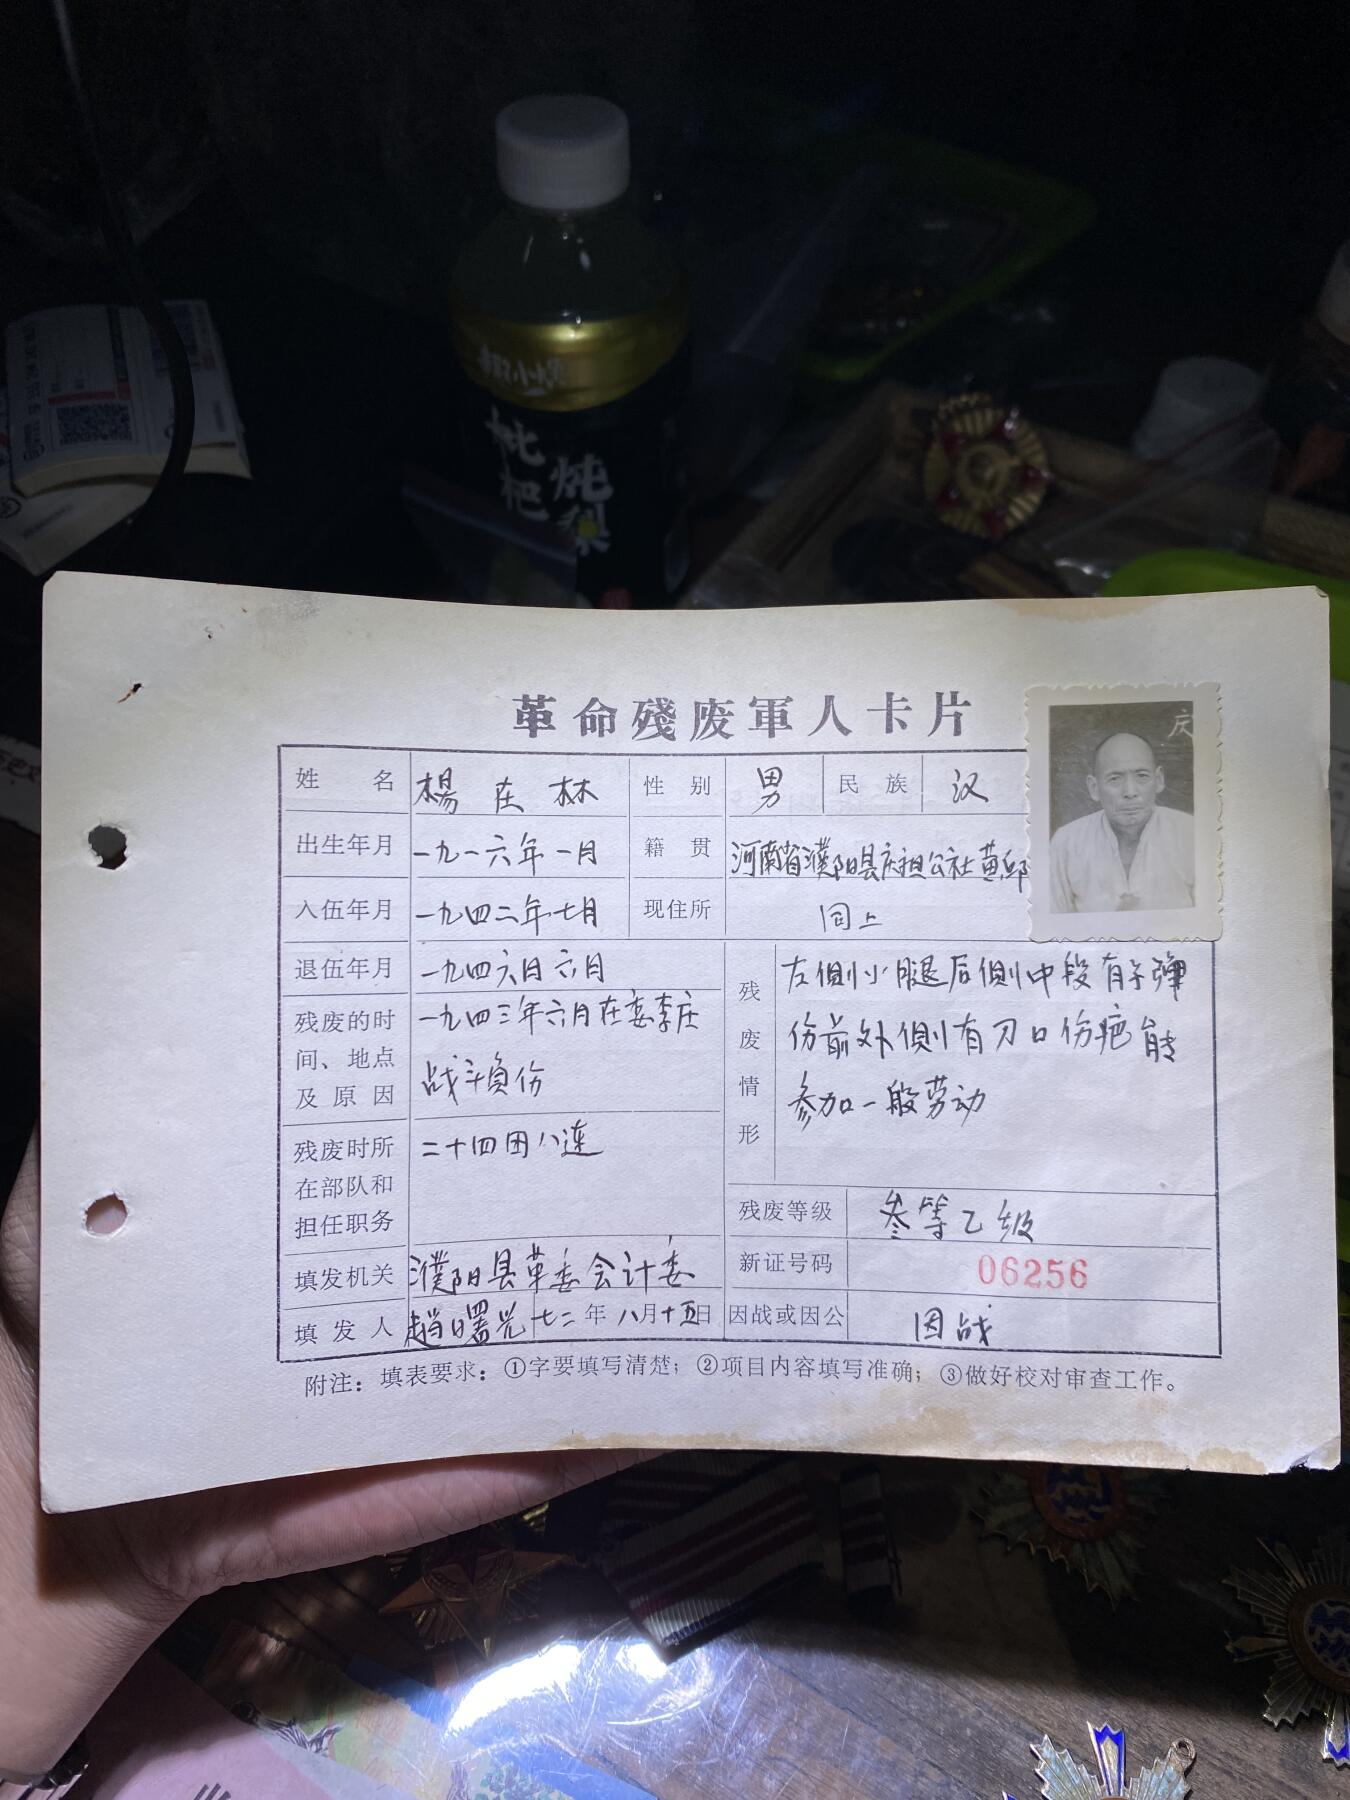 枇杷
炖梨
革命殘废軍人卡片
庆
姓名 楊在林 性别 男 民族 汉
出生年月 一九一六年一月 籍贯 河南省濮阳县庆祖公社黄邱
入伍年月 一九四二年七月 现住所 同上
退伍年月 一九四六月六月
残废的时间、地点及原因 一九四三年六月在娄李庄
战斗負伤
残废情形 左側小腿后側中段有子彈
伤前外側有刀口伤疤能
参加一般劳动
残废时所在部队和担任职务 二十四团八连
残废等级 叁等乙级
填发机关 濮阳县革委会计委 新证号码 06256
填发人 趙曙光 七二年八月十五日 因战或因公 因战
附注：填表要求：①字要填写清楚；②项目内容填写准确；③做好校对审查工作。